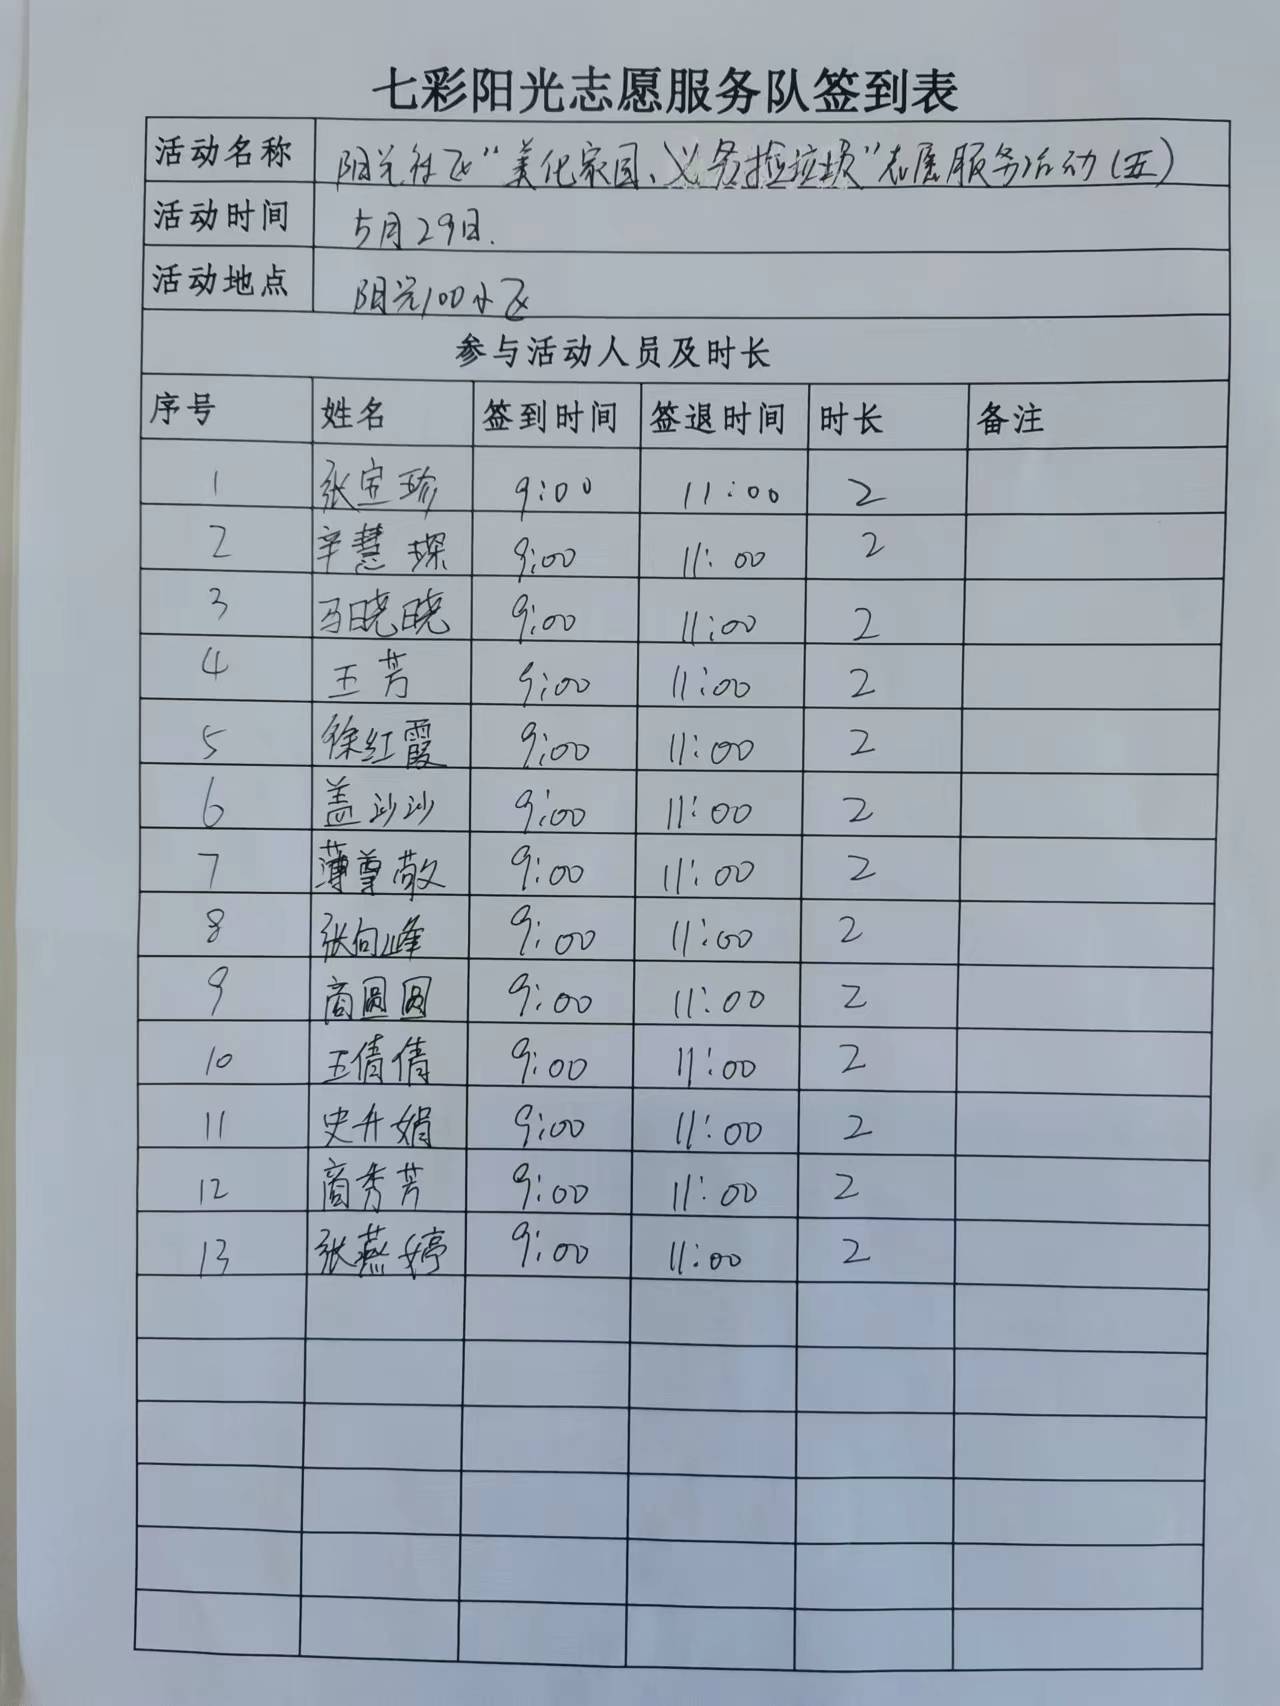 七彩阳光志愿服务队签到表
活动名称 阳光社区“美化家园、义务捡垃圾”志愿服务活动(五)
活动时间 5月29日.
活动地点 阳光100小区
参与活动人员及时长
序号 姓名 签到时间 签退时间 时长 备注
1 张宝珍 9:00 11:00 2
2 辛慧琛 9:00 11:00 2
3 马晓晓 9:00 11:00 2
4 王芳 9:00 11:00 2
5 徐红霞 9:00 11:00 2
6 盖沙沙 9:00 11:00 2
7 薄尊敬 9:00 11:00 2
8 张向峰 9:00 11:00 2
9 商圆圆 9:00 11:00 2
10 王倩倩 9:00 11:00 2
11 史升娟 9:00 11:00 2
12 商秀芳 9:00 11:00 2
13 张燕婷 9:00 11:00 2